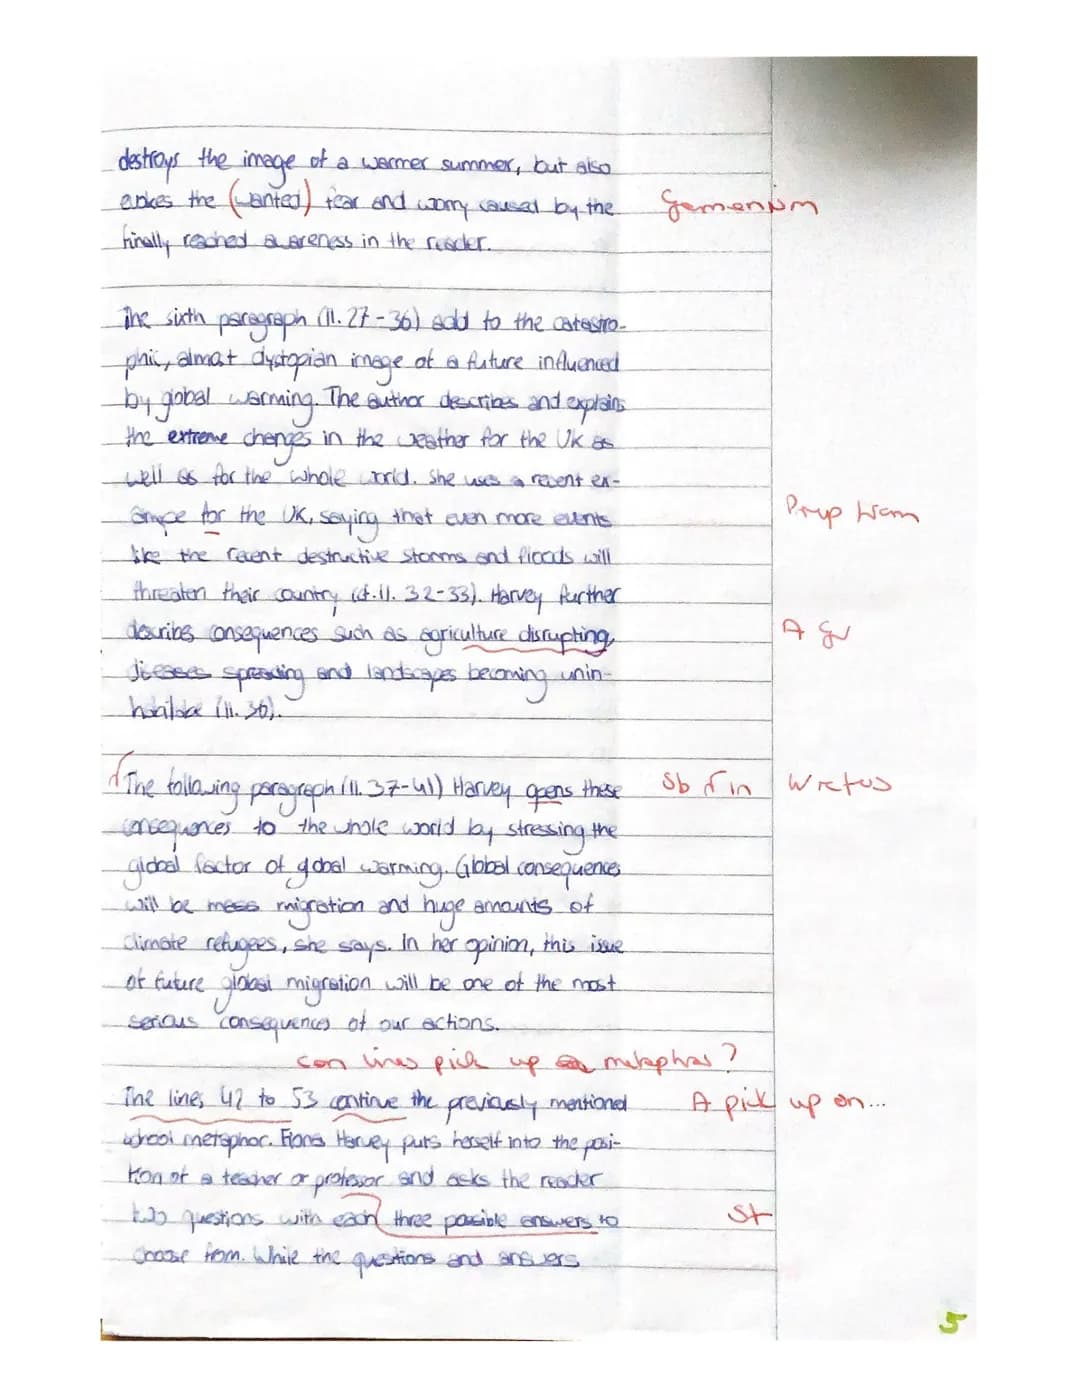 destroys the image of a warmer summer, but also
evokes the (wanted) fear and worry caused by the
finally reached awareness in the reader.
The sixth paragraph (ll. 27-36) add to the catastro-
phic, almost dystopian image of a future influenced
by global warming. The author describes and explains
the extreme changes in the weather for the UK as
well as for the whole world. She uses a recent ex-
ample for the UK, saying that even more events
Prep from
like the recent destructive storms and floods will
threaten their country (cf. ll. 32-33). Harvey further
describes consequences such as agriculture disrupting,
A gr
diseases spreading and landscapes becoming unin-
habitable (ll. 36).
The following paragraph (ll. 37-41) Harvey opens these
Sb in
consequences to the whole world by stressing the
global factor of global warming. Global consequences
will be mass migration and huge amounts of
climate refugees, she says. In her opinion, this issue
of future global migration will be one of the most
serious consequences of our actions.
can lines pick up metaphors?
The lines 42 to 53 continue the previously mentioned
A pick up on...
school metaphor. Fiona Harvey puts herself into the posi-
tion of a teacher or professor and asks the reader
two questions with each three possible answers to
St
choose from. While the questions and answers
5